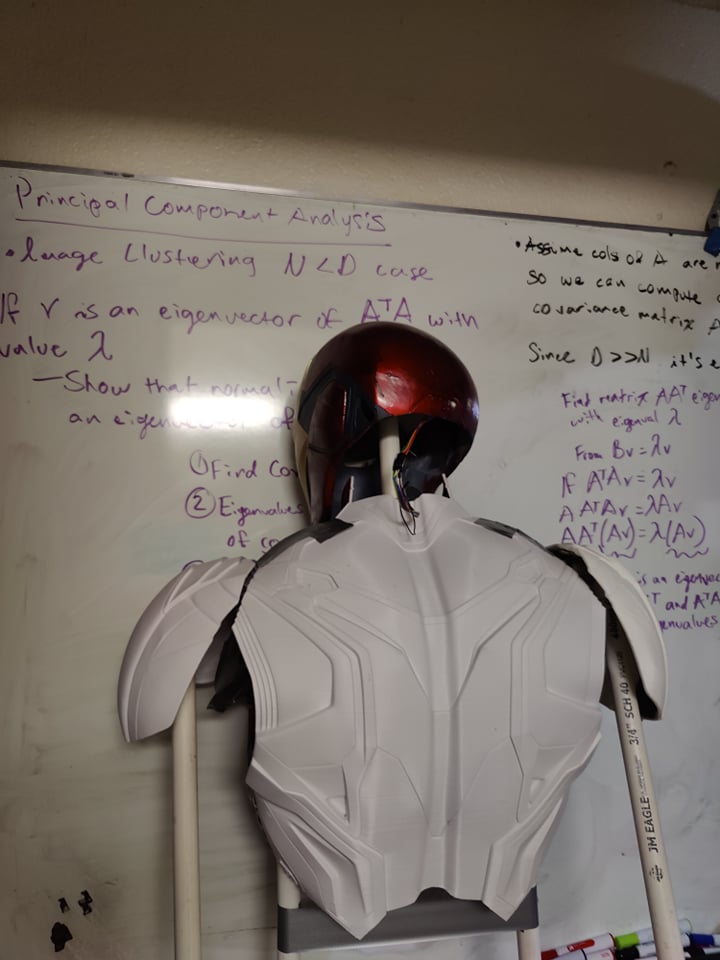 Principal Component Analysis
• Image Clustering N<D case
If v is an eigenvector of AᵀA with
value λ
— Show that
an eigenvector of
① Find
② Eigenvalues
of
• Assume cols of A are
so we can compute
covariance matrix
Since D>>N it's
Find matrix AAᵀ
with eigenval λ
From Bv = λv
If AᵀAv = λv
AAᵀAv = λAv
AAᵀ(Av) = λ(Av)
is an
and AᵀA
JM EAGLE 3/4" SCH 40